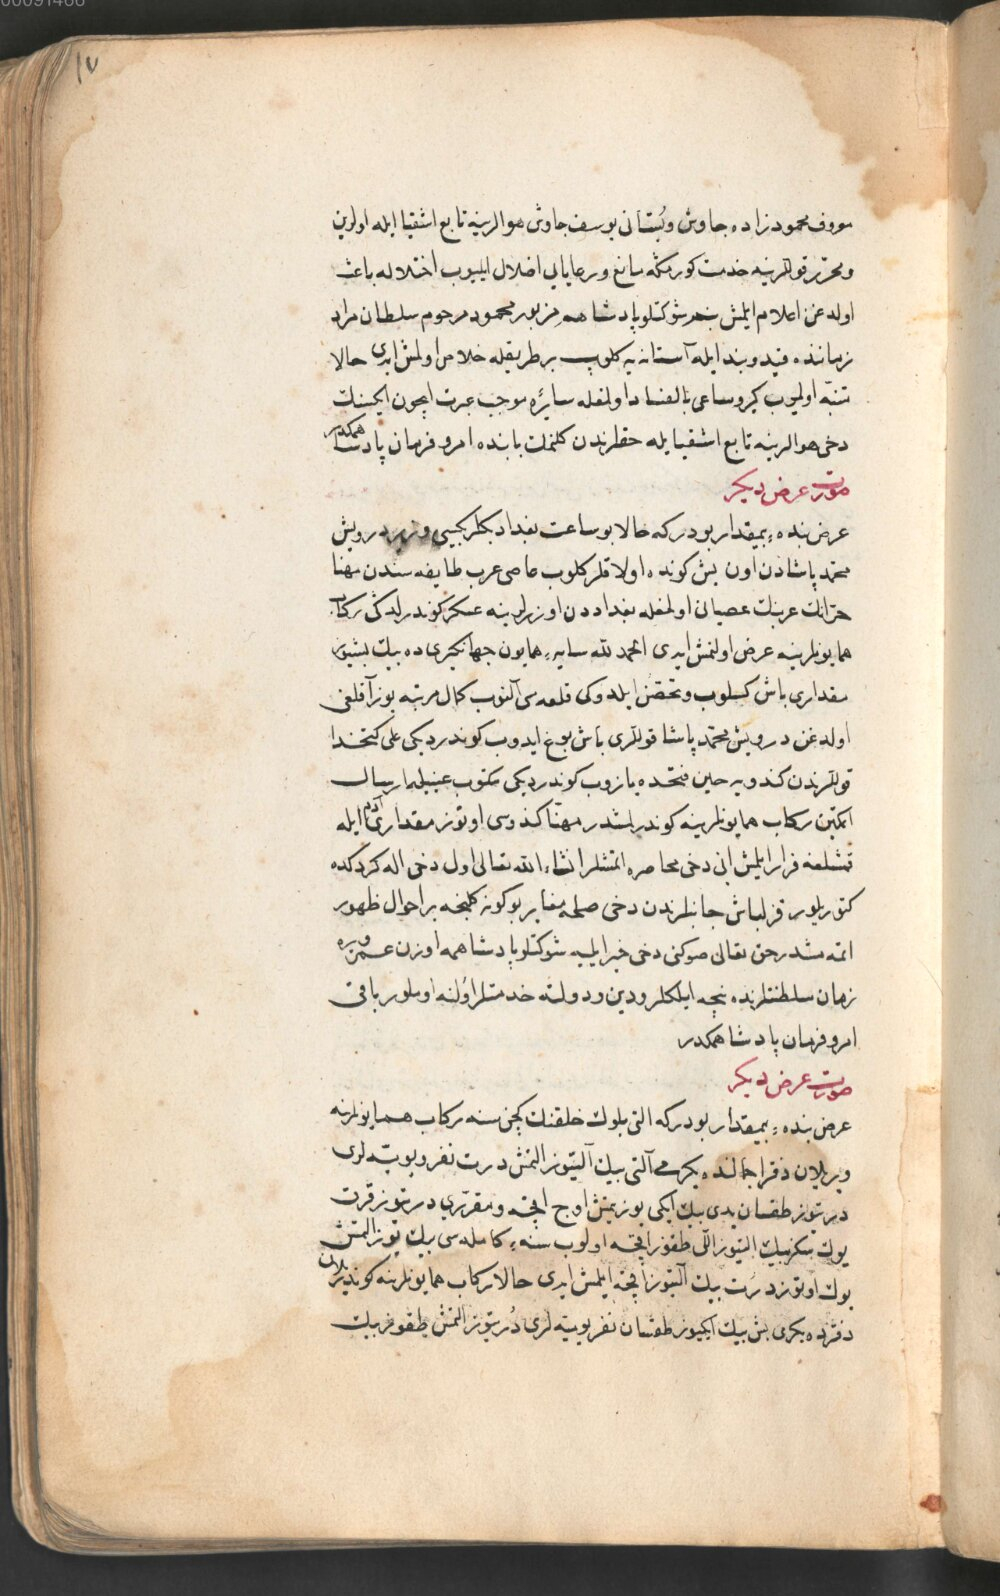 00091466
١٧
معروف محمود زاده جاوش وبُستانی یوسف جاوش هوالرینه تابع اشقیا ایله اولرین
ومحرّر قوللرینه خدمت کورمکه مانع ورعایایی اضلال ایلیوب اختلاله باعث
اولدغن اعلام ایلمش بنم شوکتلو پادشاهم مزبور محمود مرحوم سلطان مراد
زماننده قید وبند ایله آستانه یه کلوب بر طریقله خلاص اولمش ایدی حالا
متنبّه اولمیوب کیرو ساعی بالفساد اولمغله سایره موجب عبرت ایچون ایکیسنک
دخی هوالرینه تابع اشقیایله حقلرندن کلنمک بابنده امر وفرمان پادشاهمکدر
صورت عرض دیکر
عرض بنده ٔ بیمقدار بودرکه حالا بو ساعت بغداد بکلربکیسی وزیر درویش
محمّد پاشادن اون بش کونده اولاقلر کلوب عاصی عرب طایفه سندن مهنا
خزانک عربنک عصیانی اولمغله بغداددن اوزرلرینه عسکر کوندرلدکی رکاب
همایونلرینه عرض اولنمش ایدی الحمد لله سایه ٔ همایون جهانکیریده بیک بشیوز
مقداری باش کسلوب وتحصّن ایلدوکی قلعه سی آلنوب کمال مرتبه یوز آقلغی
اولدغن درویش محمّد پاشا قوللری باش بوغ ایدوب کوندردیکی علی کتخدا
قوللرندن کندویه حین فتحده یازوب کوندردیکی مکتوب عینیله ارسال
ایتمکین رکاب همایونلرینه کوندرلمشدر مهنّا کندوسی اوتوز مقداری آدم ایله
قمشلغه فرار ایلمش انی دخی محاصره ایتمشلر انشاء الله تعالی اول دخی اله کردکده
کتوریلور قزلباش جانبلرندن دخی صلحه مغایر بو کونه کلنجه بر احوال ظهور
ایتمه مشدر حق تعالی صوکنی دخی خیر ایلیه شوکتلو پادشاهمه اوزن عمر ویره
زمان سلطنتلرنده نیجه ایلکلر ودین ودولته خدمتلر اولنه اویلور باقی
امر وفرمان پادشاهمکدر
صورت عرض دیکر
عرض بنده ٔ بیمقدار بودرکه التی بلوک خلقنک کچن سنه رکاب همایونلرینه
ویریلان دفتر اجمالنده یکرمی آلتی بیک آلتیوز التمش درت نفر ویومیّه لری
درتیوز طقسان یدی بیک ایکی یوز یتمش اوچ اقچه ومقرّری درتیوز قرق
یوک سکز بیک التیوز اللی طقوز اقچه اولوب سنه ٔ کامله سی بیک یوز التمش
یوک اوتوز درت بیک آلتیوز اقچه ایلمش ایدی حالا رکاب همایونلرینه کوندریلان
دفترده یکرمی بش بیک ایکیوز طقسان نفر یومیّه لری درتیوز التمش طقوز بیک